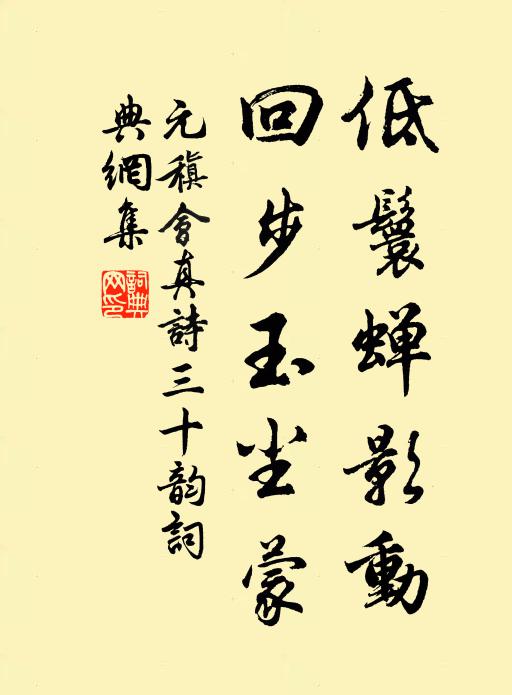 低鬟蝉影動
回步玉尘蒙
元稹會真詩三十韵詞
典網集
詞典網印